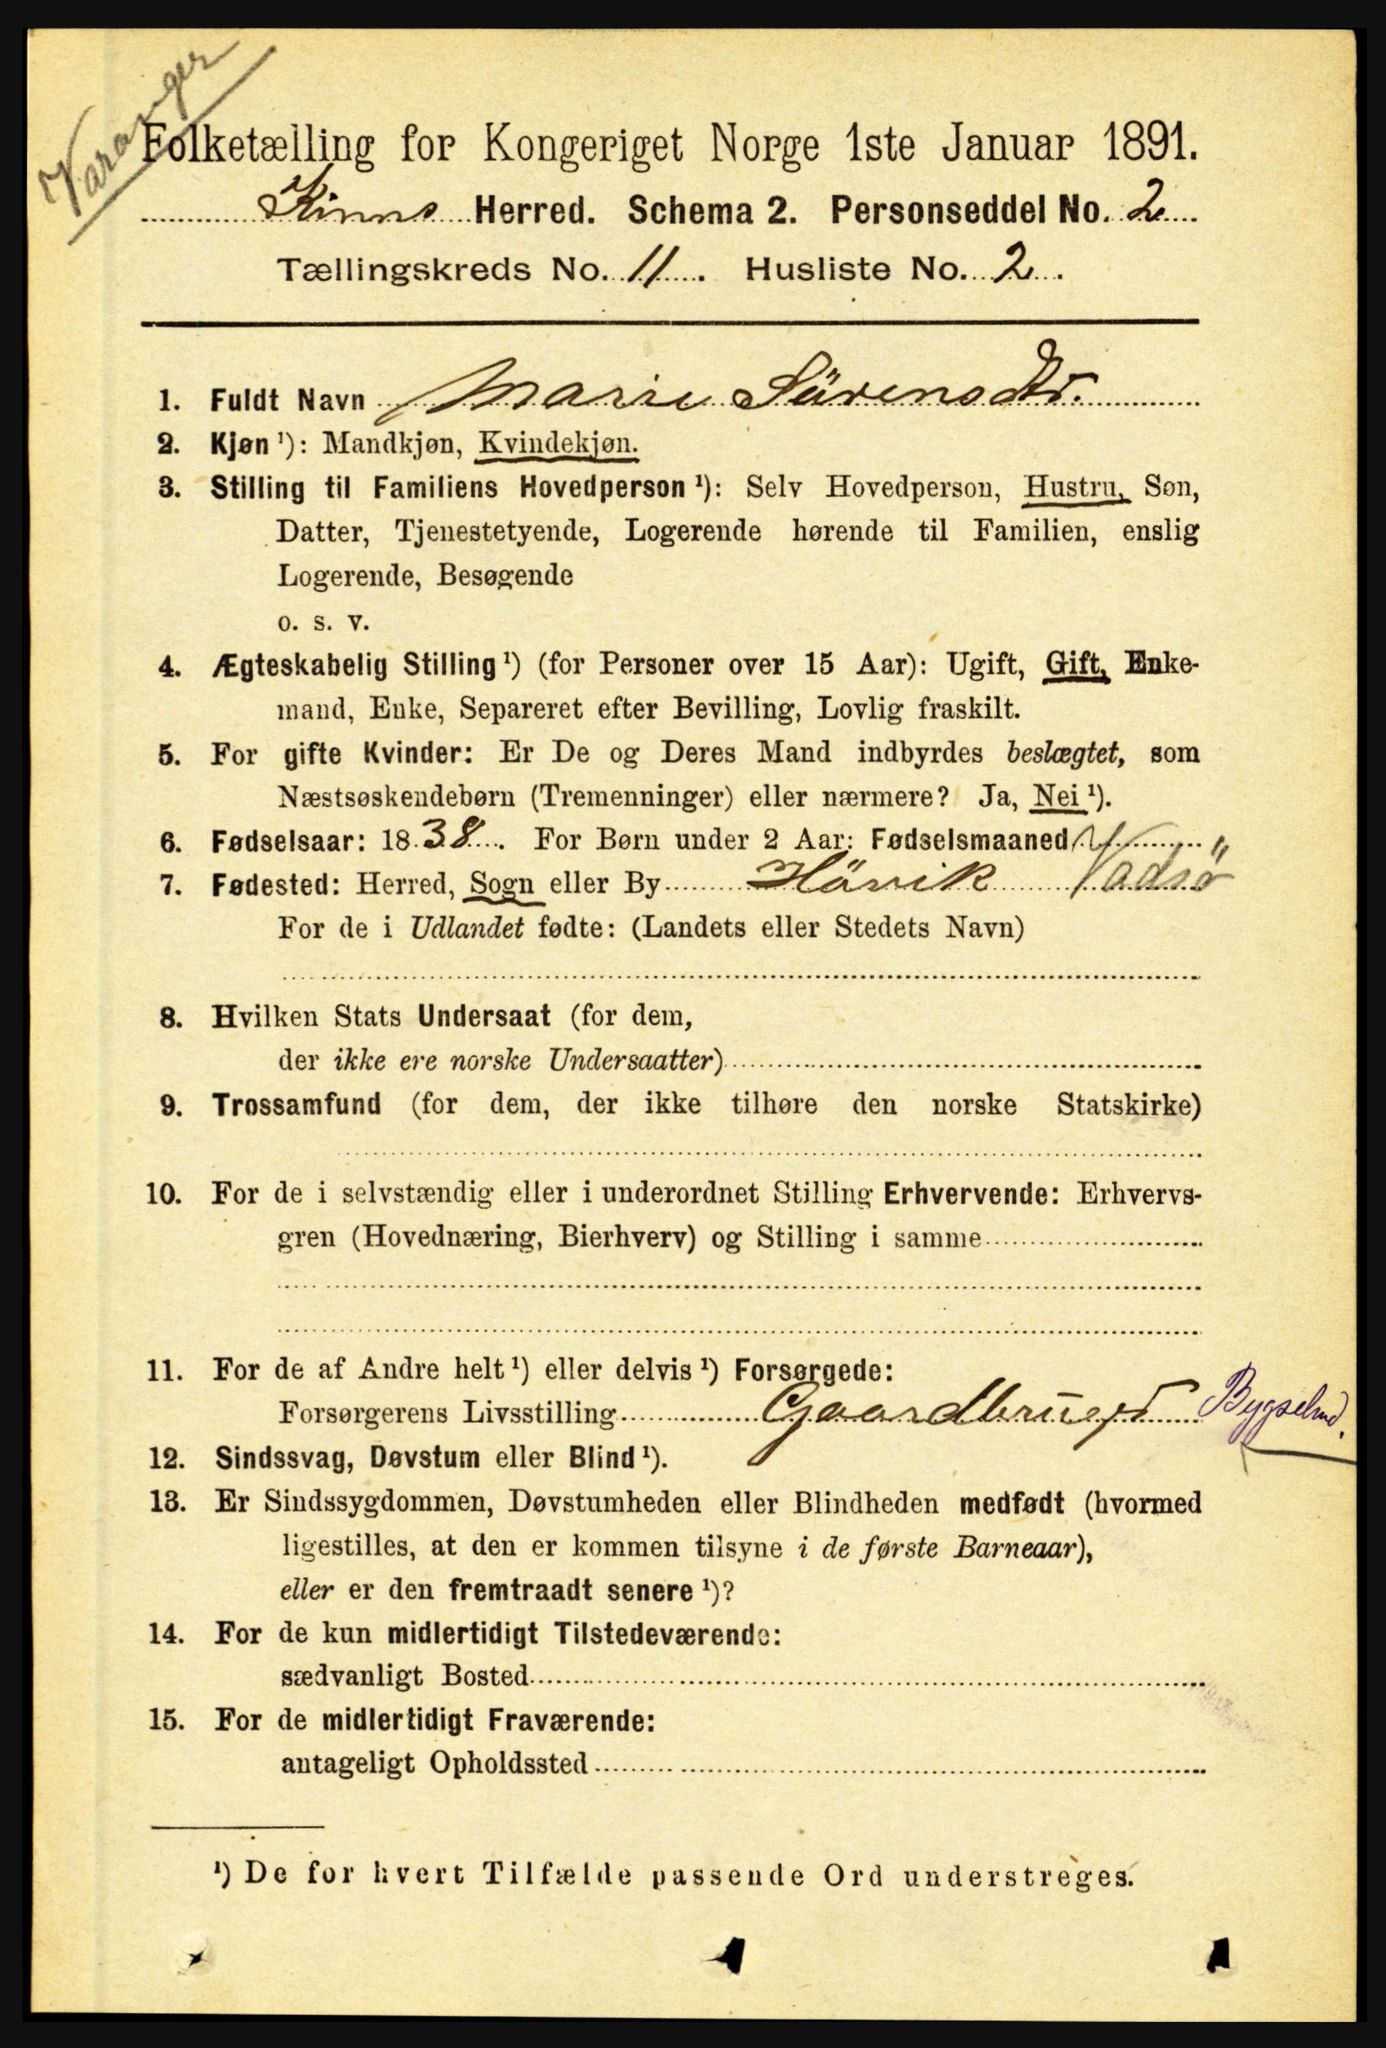 Varanger
Folketælling for Kongeriget Norge 1ste Januar 1891.
Kinns Herred. Schema 2. Personseddel No. 2
Tællingskreds No. 11. Husliste No. 2.
1. Fuldt Navn Marie Sörensdtr.
2. Kjøn ¹): Mandkjøn, Kvindekjøn.
3. Stilling til Familiens Hovedperson ¹): Selv Hovedperson, Hustru, Søn,
Datter, Tjenestetyende, Logerende hørende til Familien, enslig
Logerende, Besøgende
o. s. v.
4. Ægteskabelig Stilling ¹) (for Personer over 15 Aar): Ugift, Gift, Enke-
mand, Enke, Separeret efter Bevilling, Lovlig fraskilt.
5. For gifte Kvinder: Er De og Deres Mand indbyrdes beslægtet, som
Næstsøskendebørn (Tremenninger) eller nærmere? Ja, Nei ¹).
6. Fødselsaar: 1838. For Børn under 2 Aar: Fødselsmaaned
7. Fødested: Herred, Sogn eller By Hövik Vadsö
For de i Udlandet fødte: (Landets eller Stedets Navn)
8. Hvilken Stats Undersaat (for dem,
der ikke ere norske Undersaatter)
9. Trossamfund (for dem, der ikke tilhøre den norske Statskirke)
10. For de i selvstændig eller i underordnet Stilling Erhvervende: Erhvervs-
gren (Hovednæring, Bierhverv) og Stilling i samme
11. For de af Andre helt ¹) eller delvis ¹) Forsørgede:
Forsørgerens Livsstilling Gaardbruger Bygselmd.
12. Sindssvag, Døvstum eller Blind ¹).
13. Er Sindssygdommen, Døvstumheden eller Blindheden medfødt (hvormed
ligestilles, at den er kommen tilsyne i de første Barneaar),
eller er den fremtraadt senere ¹)?
14. For de kun midlertidigt Tilstedeværende:
sædvanligt Bosted
15. For de midlertidigt Fraværende:
antageligt Opholdssted
¹) De for hvert Tilfælde passende Ord understreges.